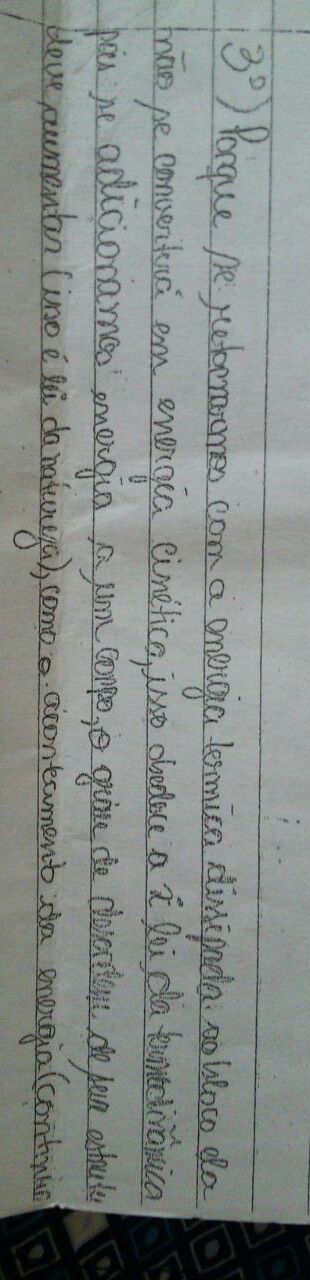 3º) Porque se retornarmos com a energia térmica dissipada ao bloco ela
não se converterá em energia cinética, isso obedece a 2ª lei da termodinâmica
pois se adicionamos energia a um corpo, o grau de desordem de sua estrutu
deve aumentar (isso é lei da natureza), como o acontecimento da energia (contrária